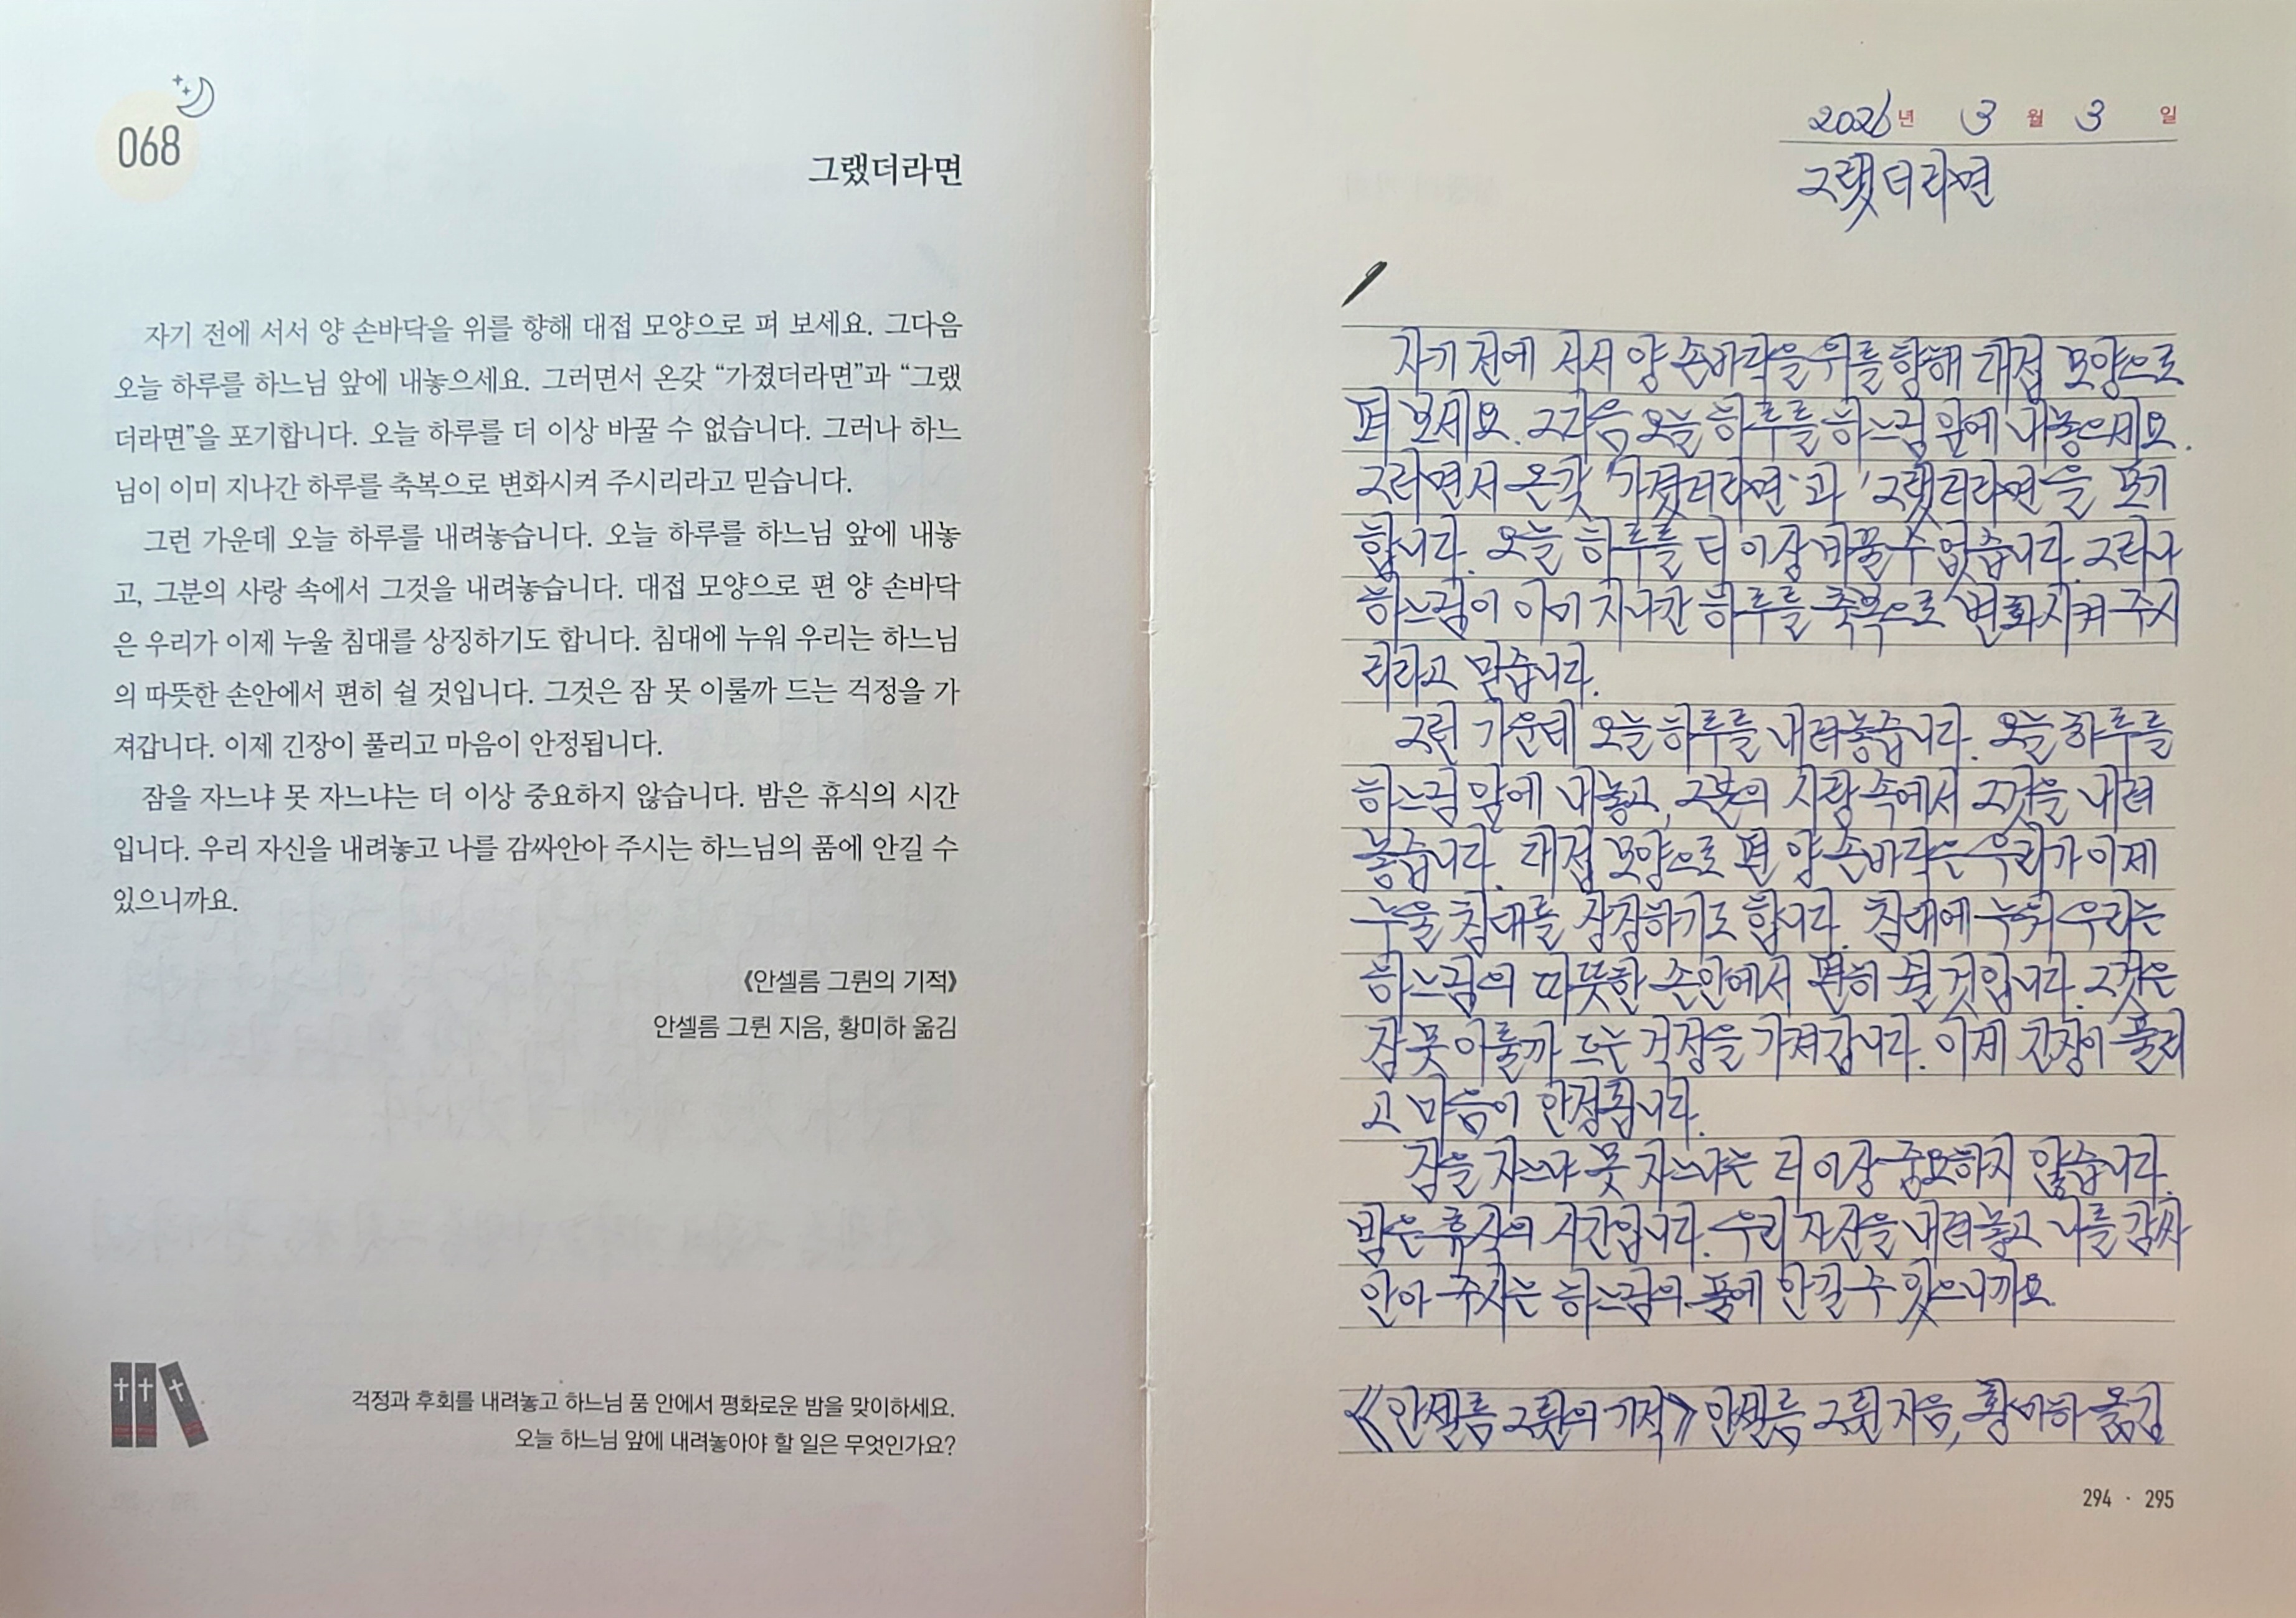 068
그랬더라면
자기 전에 서서 양 손바닥을 위를 향해 대접 모양으로 펴 보세요. 그다음
오늘 하루를 하느님 앞에 내놓으세요. 그러면서 온갖 “가졌더라면”과 “그랬
더라면”을 포기합니다. 오늘 하루를 더 이상 바꿀 수 없습니다. 그러나 하느
님이 이미 지나간 하루를 축복으로 변화시켜 주시리라고 믿습니다.
그런 가운데 오늘 하루를 내려놓습니다. 오늘 하루를 하느님 앞에 내놓
고, 그분의 사랑 속에서 그것을 내려놓습니다. 대접 모양으로 편 양 손바닥
은 우리가 이제 누울 침대를 상징하기도 합니다. 침대에 누워 우리는 하느님
의 따뜻한 손안에서 편히 쉴 것입니다. 그것은 잠 못 이룰까 드는 걱정을 가
져갑니다. 이제 긴장이 풀리고 마음이 안정됩니다.
잠을 자느냐 못 자느냐는 더 이상 중요하지 않습니다. 밤은 휴식의 시간
입니다. 우리 자신을 내려놓고 나를 감싸안아 주시는 하느님의 품에 안길 수
있으니까요.
《안셀름 그륀의 기적》
안셀름 그륀 지음, 황미하 옮김
걱정과 후회를 내려놓고 하느님 품 안에서 평화로운 밤을 맞이하세요.
오늘 하느님 앞에 내려놓아야 할 일은 무엇인가요?
2026년 3월 3일
그랬더라면
자기 전에 서서 양 손바닥을 위를 향해 대접 모양으로
펴 보세요. 그다음 오늘 하루를 하느님 앞에 내놓으세요.
그러면서 온갖 '가졌더라면'과 '그랬더라면'을 포기
합니다. 오늘 하루를 더 이상 바꿀 수 없습니다. 그러나
하느님이 이미 지나간 하루를 축복으로 변화시켜 주시
리라고 믿습니다.
그런 가운데 오늘 하루를 내려놓습니다. 오늘 하루를
하느님 앞에 내놓고, 그분의 사랑 속에서 그것을 내려
놓습니다. 대접 모양으로 편 양 손바닥은 우리가 이제
누울 침대를 상징하기도 합니다. 침대에 누워 우리는
하느님의 따뜻한 손안에서 편히 쉴 것입니다. 그것은
잠 못 이룰까 드는 걱정을 가져갑니다. 이제 긴장이 풀리
고 마음이 안정됩니다.
잠을 자느냐 못 자느냐는 더 이상 중요하지 않습니다.
밤은 휴식의 시간입니다. 우리 자신을 내려놓고 나를 감싸
안아 주시는 하느님의 품에 안길 수 있으니까요.
《안셀름 그륀의 기적》 안셀름 그륀 지음, 황미하 옮김
294 · 295